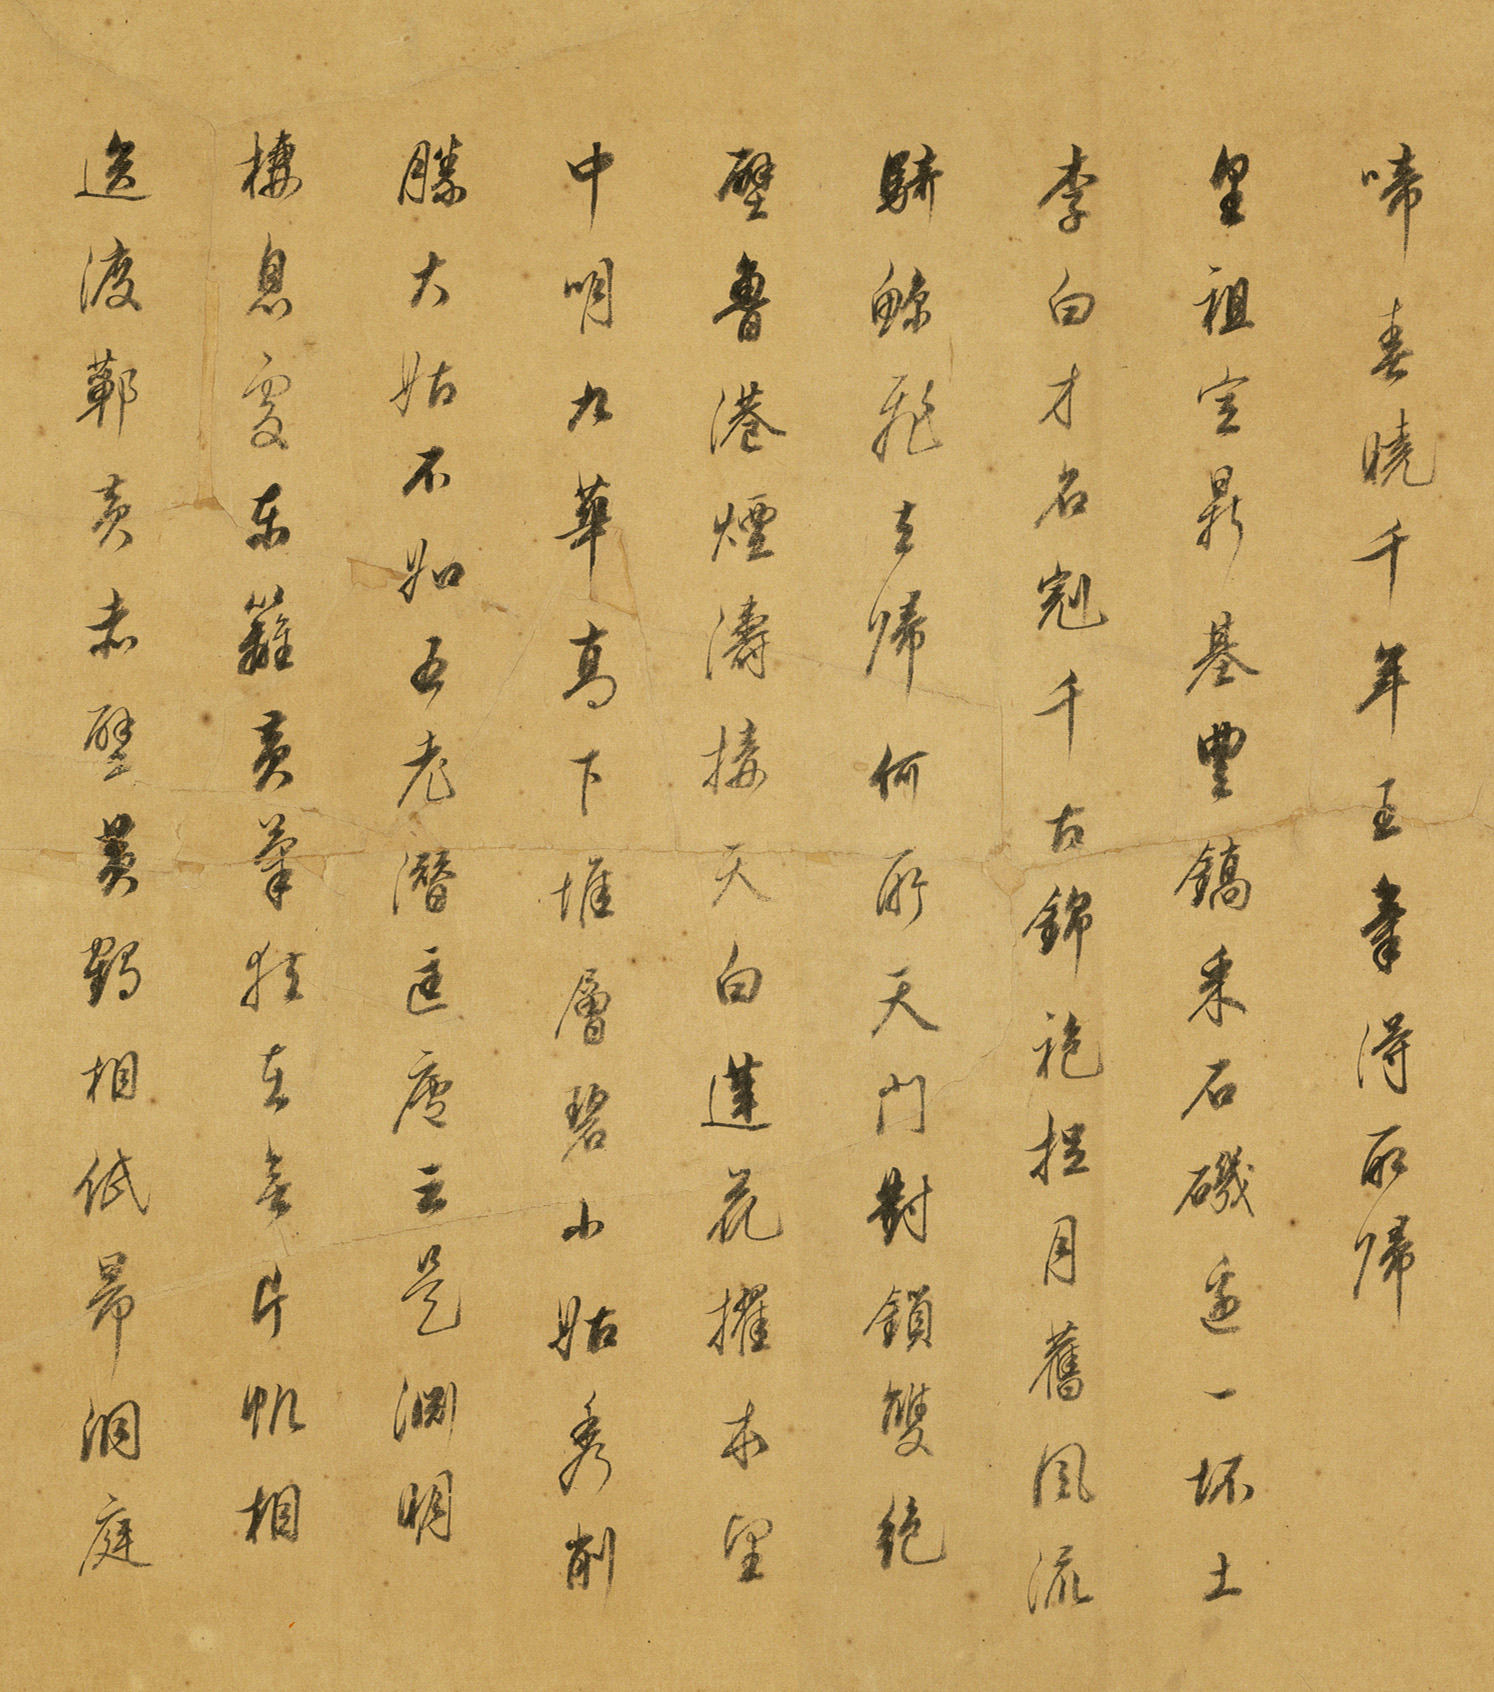 啼春曉千年王氣得所歸
皇祖定鼎基豐鎬采石磯邊一坏土
李白才名冠千古錦袍捉月舊風流
騎鯨飛去歸何所天門對鎖雙絕
壁魯港煙濤接天白蓮花擢木望
中明九華高下堆層碧小姑秀削
勝大姑不如五老潛匡廬云是淵明
棲息處東籬黃菊猶在無片帆相
送渡蘄黃赤壁黃鶴相低昂洞庭